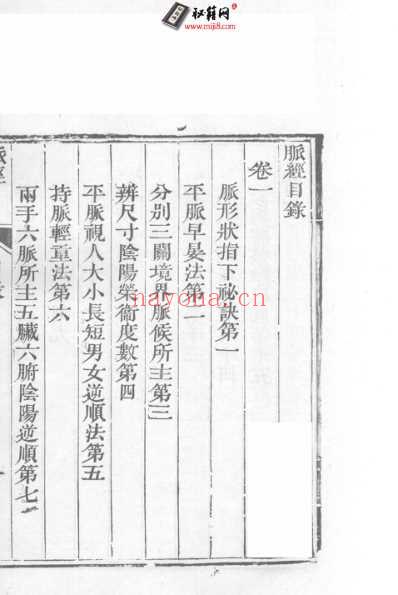 秘籍网
www.miji8.com
脈經目錄
卷一
脈形狀指下祕訣第一
平脈早晏法第二
分別三關境界脈候所主第三
辨尺寸陰陽榮衞度數第四
平脈視人大小長短男女逆順法第五
持脈輕重法第六
兩手六脈所主五臟六腑陰陽逆順第七
nayona.cn